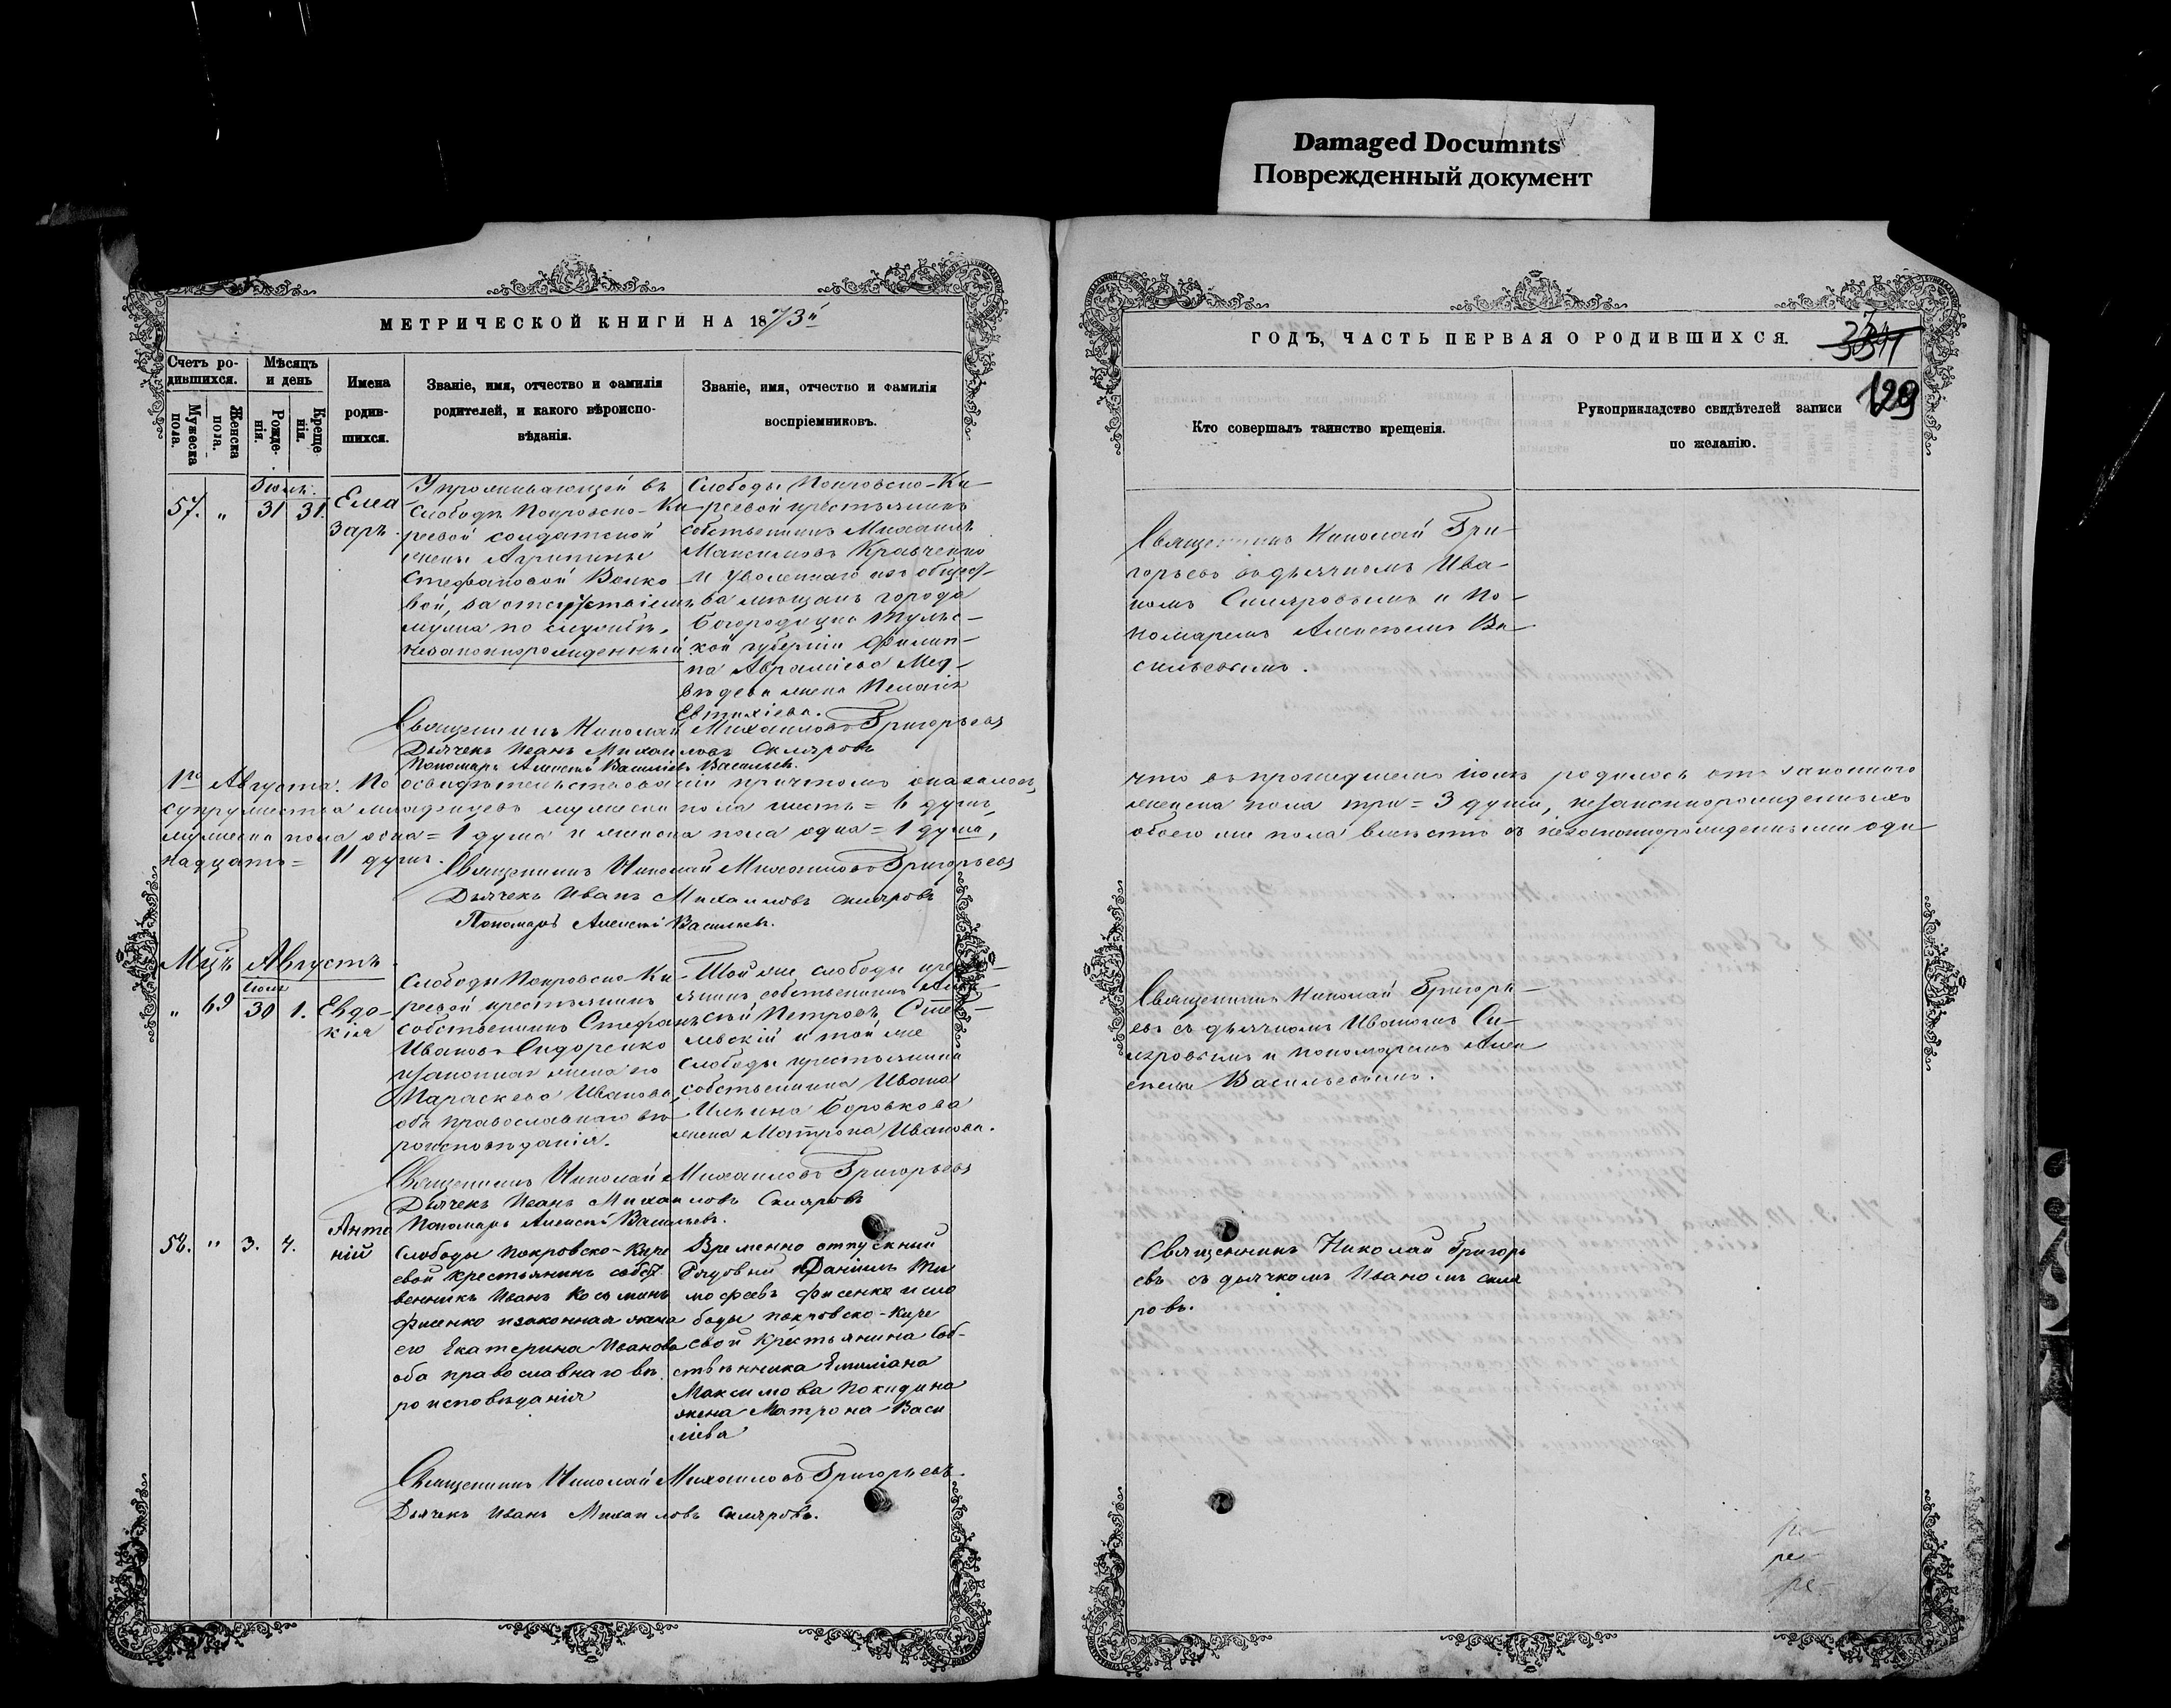 Damaged Documnts
Поврежденный документ
МЕТРИЧЕСКОЙ КНИГИ НА 1873й
Счетъ ро-
дившихся.
Мужеска пола.
Женска пола.
Мѣсяцъ
и день
Рожде-
нія.
Креще
нія.
Имена
родив-
шихся.
Званіе, имя, отчество и фамилія
родителей, и какого вѣроиспо-
вѣданія.
Званіе, имя, отчество и фамилія
воспріемниковъ.
57. " 31 31.
Елеа
заръ.
У проживающей въ
слободѣ Покровско-Ки
реевой солдатской
жены Агрипины
Стефановой Волко
вой, за отсутствіемъ
мужа по службѣ,
незаконнорожденный
Слободы Покровско-Ки
реевой крестьянинъ
собственникъ Михаилъ
Максимовъ Кравченко
и уволеннаго изъ общест
ва мѣщанъ города
Богородицка Тульс-
кой губерніи Филип-
па Авраміева Мед-
вѣдева жена Пелагія
Евтихіева.
Священникъ Николай Михаиловъ Григорьевъ
Дьячекъ Иванъ Михаиловъ Скляровъ
Пономарь Алексѣй Васильевъ Васильевъ.
1го Августа. По освидѣтельствованіи причтомъ оказалось,
супружества младенцевъ мужеска пола шесть = 6 душъ,
мужеска пола одна = 1 душа и женска пола одна = 1 душа,
надцать = 11 душъ.
Священникъ Николай Михаиловъ Григорьевъ
Дьячекъ Иванъ Михаиловъ Скляровъ
Пономарь Алексѣй Васильевъ.
Мцъ Августъ.
Іюля
" 69 30 1.
Евдо-
кія
Слободы Покровско-Ки
реевой крестьянинъ
собственникъ Стефанъ
Ивановъ Сидоренко
и законная жена его
Параскева Иванова
оба православнаго вѣ
роисповѣданія.
Той же слободы крес
янинъ собственникъ
сѣй Петровъ
и той же
слободы крестьянина
собственника Ивана
Ильина Боровкова
жена Матрона Иванова.
Священникъ Николай Михаиловъ Григорьевъ
Дьячекъ Иванъ Михаиловъ Скляровъ
Пономарь Алексѣй Васильевъ.
58. " 3. 4.
Анто
ній
Слободы Покровско-Кире
евой крестьянинъ собст
венникъ Иванъ Косьминъ
Фисенко и законная жена
его Екатерина Иванова
оба православнаго вѣ
роисповѣданія
Временно отпускный
Рядовый Даніилъ Ти
мофеевъ Фисенко и сло
боды Покровско-Кире
евой крестьянина соб-
ственника Емиліана
Максимова Покидина
жена Матрона Васи
ліева
Священникъ Николай Михаиловъ Григорьевъ.
Дьячекъ Иванъ Михаиловъ Скляровъ.
ГОДЪ, ЧАСТЬ ПЕРВАЯ О РОДИВШИХСЯ.
129
Кто совершалъ таинство крещенія.
Рукоприкладство свидѣтелей записи
по желанію.
Священникъ Николай Гри-
горьевъ съ дьячкомъ Ива-
номъ Скляровымъ и По-
номаремъ Алексѣемъ Ва
сильевымъ.
что въ прошедшемъ іюлѣ родилось отъ законного
женска пола три = 3 души, незаконнорожденныхъ
обоего же пола вмѣстѣ съ незаконнорожденными оди
Священникъ Николай Григорь-
евъ съ дьячкомъ Иваномъ Ск-
ляровымъ и пономаремъ Алек
сѣемъ Васильевымъ.
Священникъ Николай Григорь
евъ съ дьячкомъ Иваномъ Скля
ровъ.
ре-
ре-
ре-